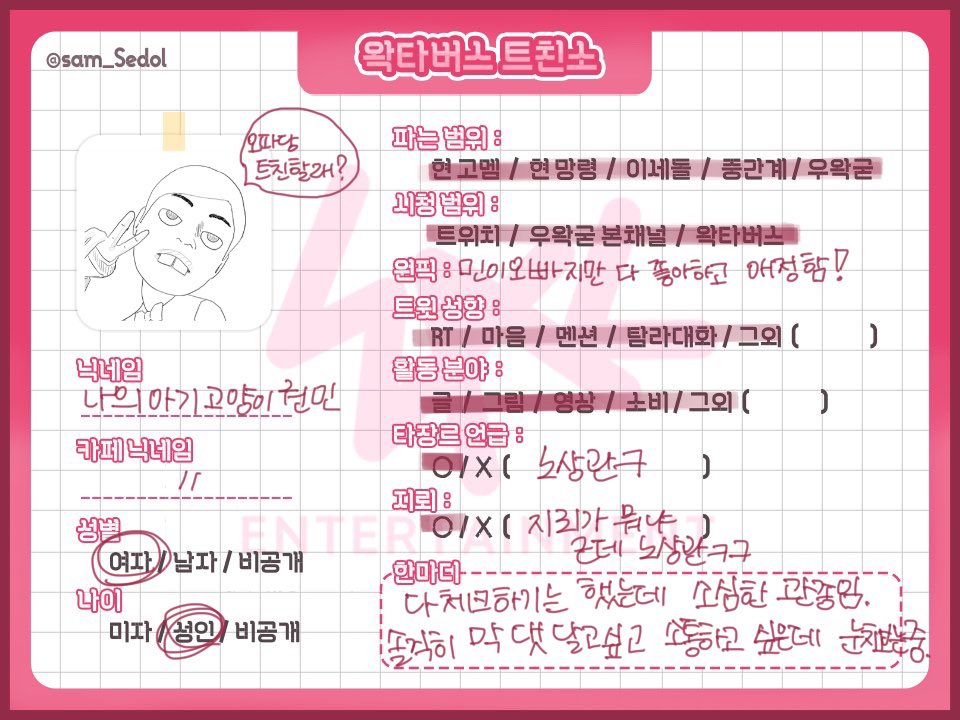 @sam_Sedol
왁타버스 트친소
오파당
트친할래?
닉네임
나의아기고양이권민
카페 닉네임
〃
성별
여자 / 남자 / 비공개
나이
미자 / 성인 / 비공개
파는 범위 :
현고멤 / 현망령 / 이세돌 / 중간계 / 우왁굳
시청 범위 :
트위치 / 우왁굳 본채널 / 왁타버스
원픽 : 민이오빠지만 다 좋아하고 애정함!
트윗 성향 :
RT / 마음 / 멘션 / 탐라대화 / 그외 ( )
활동 분야 :
글 / 그림 / 영상 / 소비 / 그외 ( )
타장르 언급 :
O / X ( 노상관ㅋ )
지뢰 :
O / X ( 지뢰가 뭐냐 )
근데 노상관ㅋㅋ
한마디
다체크하기는 했는데 소심한 관종임.
솔직히 막 댓 달고싶고 소통하고 싶은데 눈치보는중.
ENTERTAINMENT